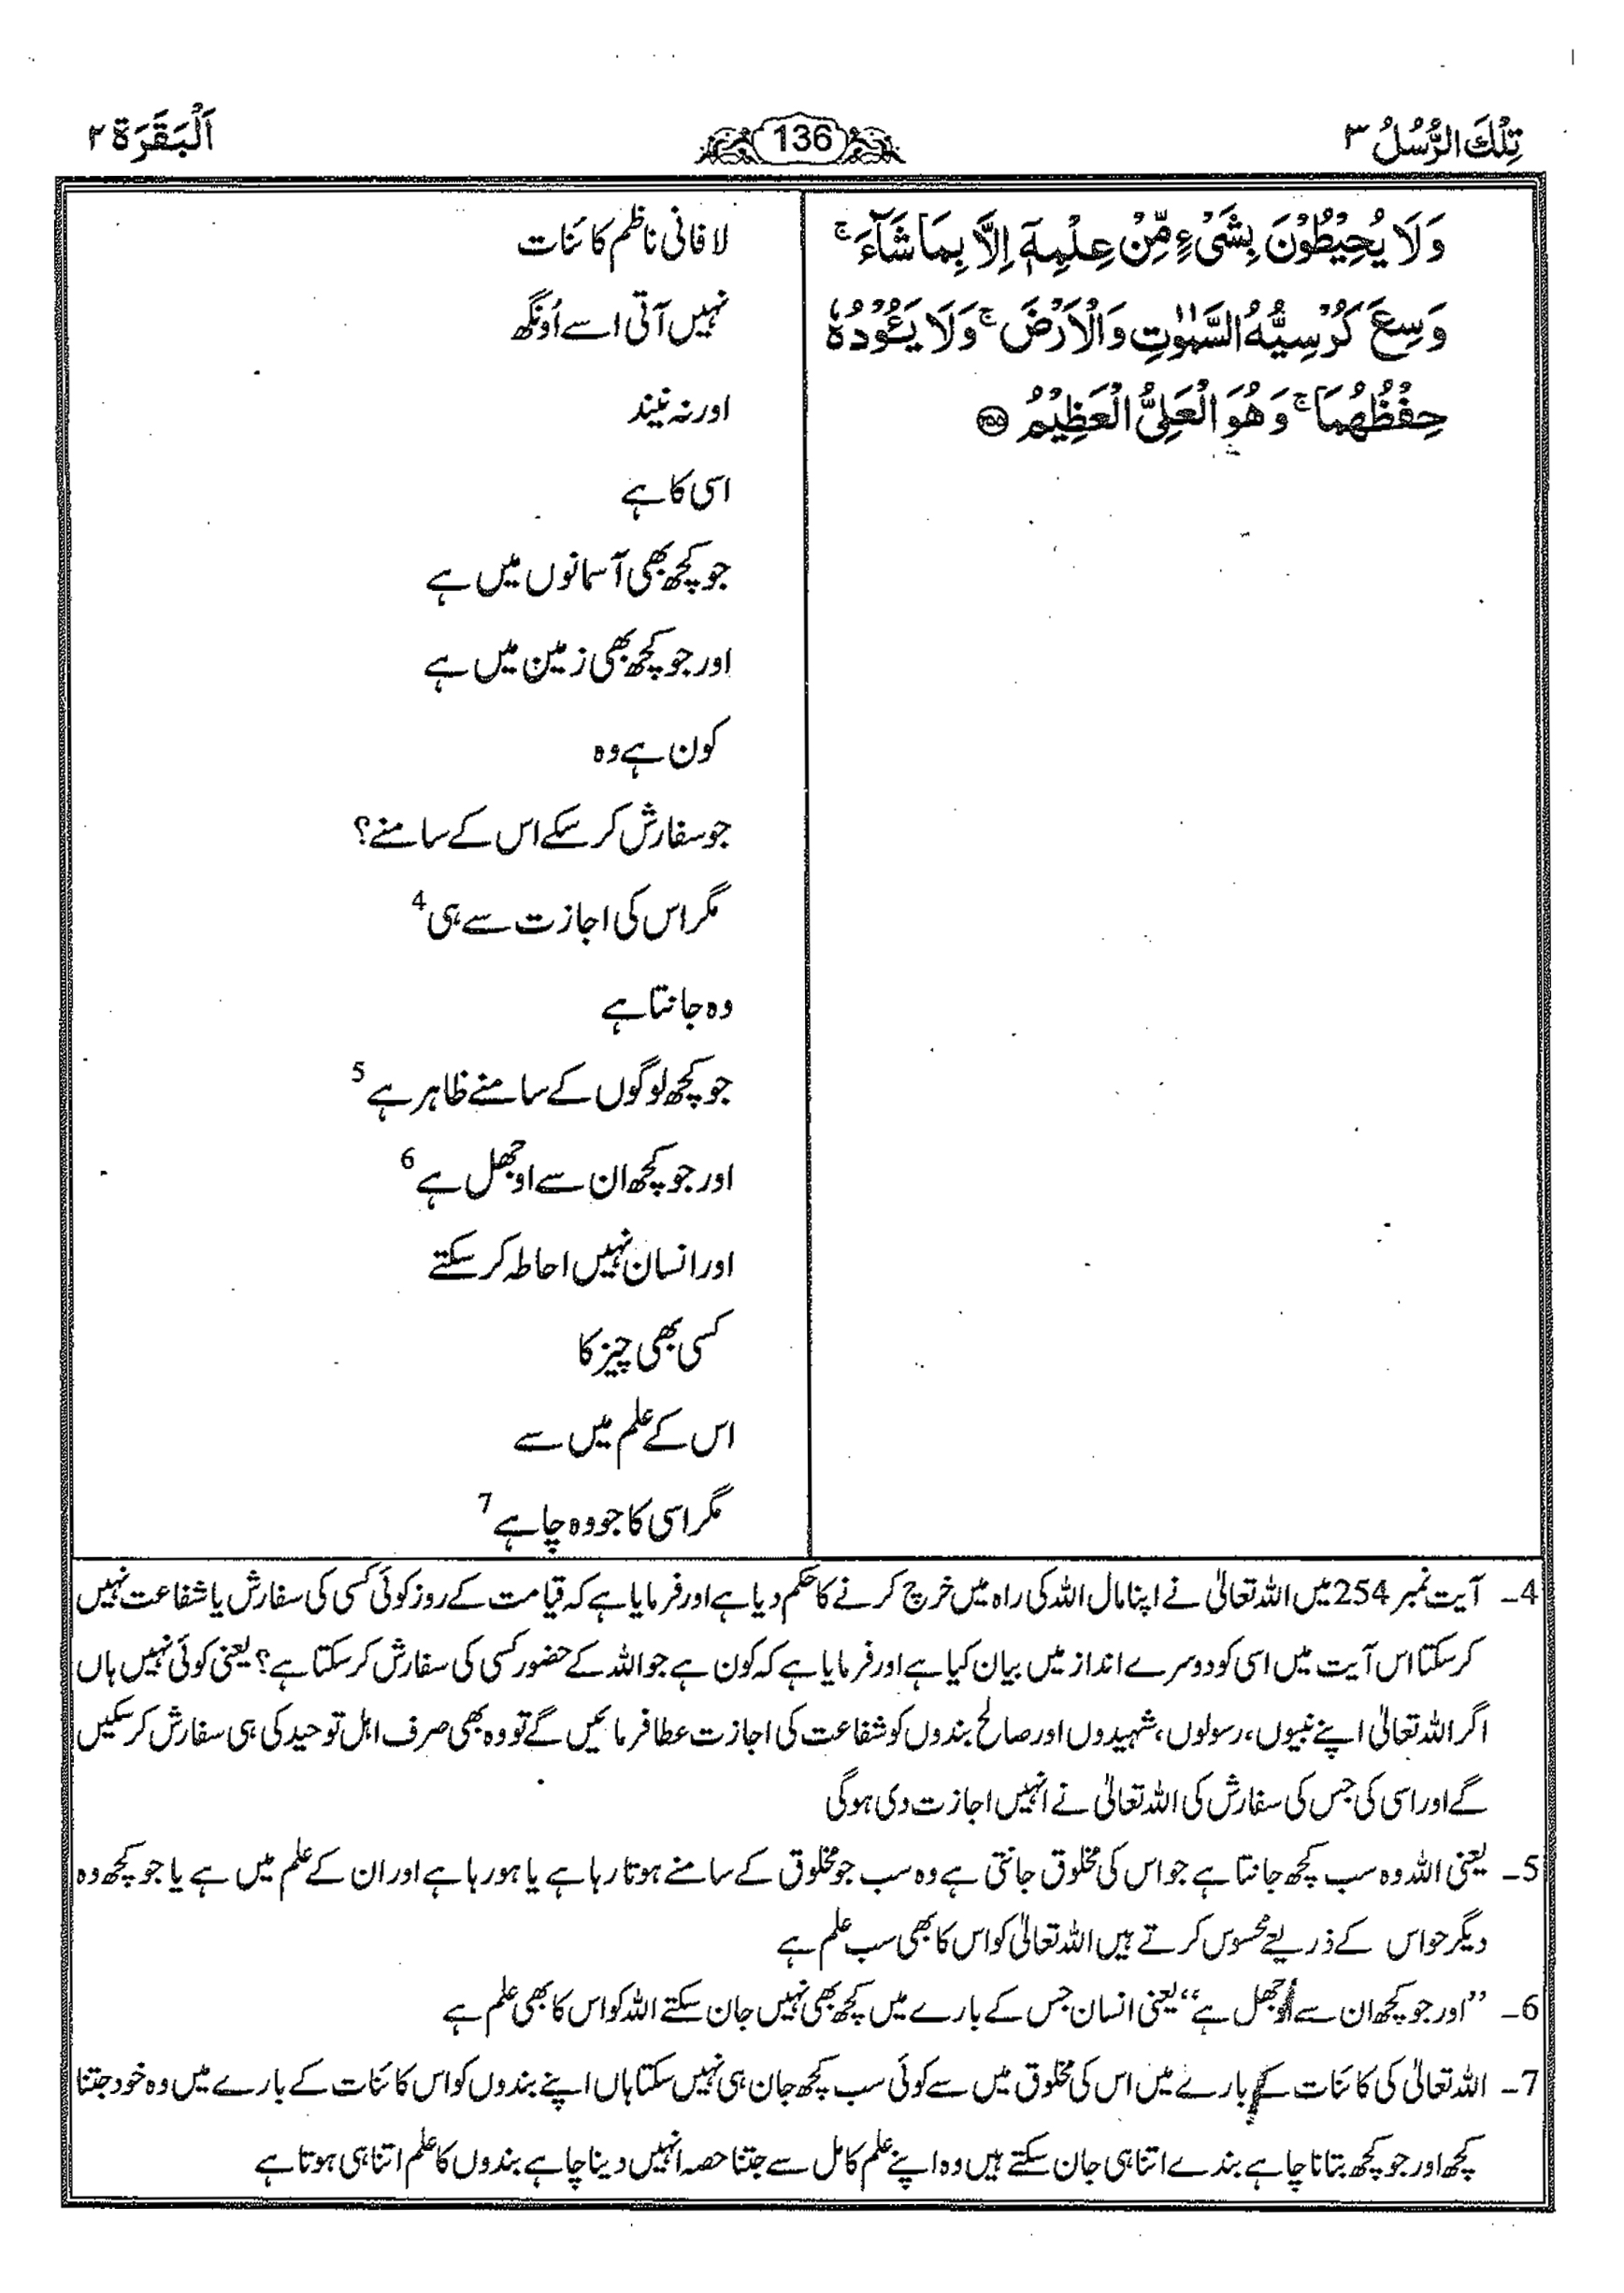 تِلْكَ الرُّسُلُ ۳
136
اَلْبَقَرَة ۲
وَلَا يُحِيْطُوْنَ بِشَىْءٍ مِّنْ عِلْمِهٖٓ اِلَّا بِمَا شَآءَ ۚ
وَسِعَ كُرْسِيُّهُ السَّمٰوٰتِ وَالْاَرْضَ ۚ وَلَا يَـُٔوْدُهٗ
حِفْظُهُمَا ۚ وَهُوَ الْعَلِىُّ الْعَظِيْمُ ۲۵۵
لافانی ناظم کائنات
نہیں آتی اسے اُونگھ
اور نہ نیند
اسی کا ہے
جو کچھ بھی آسمانوں میں ہے
اور جو کچھ بھی زمین میں ہے
کون ہے وہ
جو سفارش کر سکے اس کے سامنے؟
مگر اس کی اجازت سے ہی 4
وہ جانتا ہے
جو کچھ لوگوں کے سامنے ظاہر ہے 5
اور جو کچھ ان سے اوجھل ہے 6
اور انسان نہیں احاطہ کر سکتے
کسی بھی چیز کا
اس کے علم میں سے
مگر اسی کا جو وہ چاہے 7
4۔ آیت نمبر 254 میں اللہ تعالیٰ نے اپنا مال اللہ کی راہ میں خرچ کرنے کا حکم دیا ہے اور فرمایا ہے کہ قیامت کے روز کوئی کسی کی سفارش یا شفاعت نہیں
کر سکتا اس آیت میں اسی کو دوسرے انداز میں بیان کیا ہے اور فرمایا ہے کہ کون ہے جو اللہ کے حضور کسی کی سفارش کر سکتا ہے؟ یعنی کوئی نہیں ہاں
اگر اللہ تعالیٰ اپنے نبیوں، رسولوں، شہیدوں اور صالح بندوں کو شفاعت کی اجازت عطا فرمائیں گے تو وہ بھی صرف اہل توحید کی ہی سفارش کر سکیں
گے اور اسی کی جس کی سفارش کی اللہ تعالیٰ نے انہیں اجازت دی ہوگی
5۔ یعنی اللہ وہ سب کچھ جانتا ہے جو اس کی مخلوق جانتی ہے وہ سب جو مخلوق کے سامنے ہوتا رہا ہے یا ہو رہا ہے اور ان کے علم میں ہے یا جو کچھ وہ
دیگر حواس کے ذریعے محسوس کرتے ہیں اللہ تعالیٰ کو اس کا بھی سب علم ہے
6۔ ”اور جو کچھ ان سے اُوجھل ہے“ یعنی انسان جس کے بارے میں کچھ بھی نہیں جان سکتے اللہ کو اس کا بھی علم ہے
7۔ اللہ تعالیٰ کی کائنات کے بارے میں اس کی مخلوق میں سے کوئی سب کچھ جان ہی نہیں سکتا ہاں اپنے بندوں کو اس کائنات کے بارے میں وہ خود جتنا
کچھ اور جو کچھ بتانا چاہے بندے اتنا ہی جان سکتے ہیں وہ اپنے علم کامل سے جتنا حصہ انہیں دینا چاہے بندوں کا علم اتنا ہی ہوتا ہے